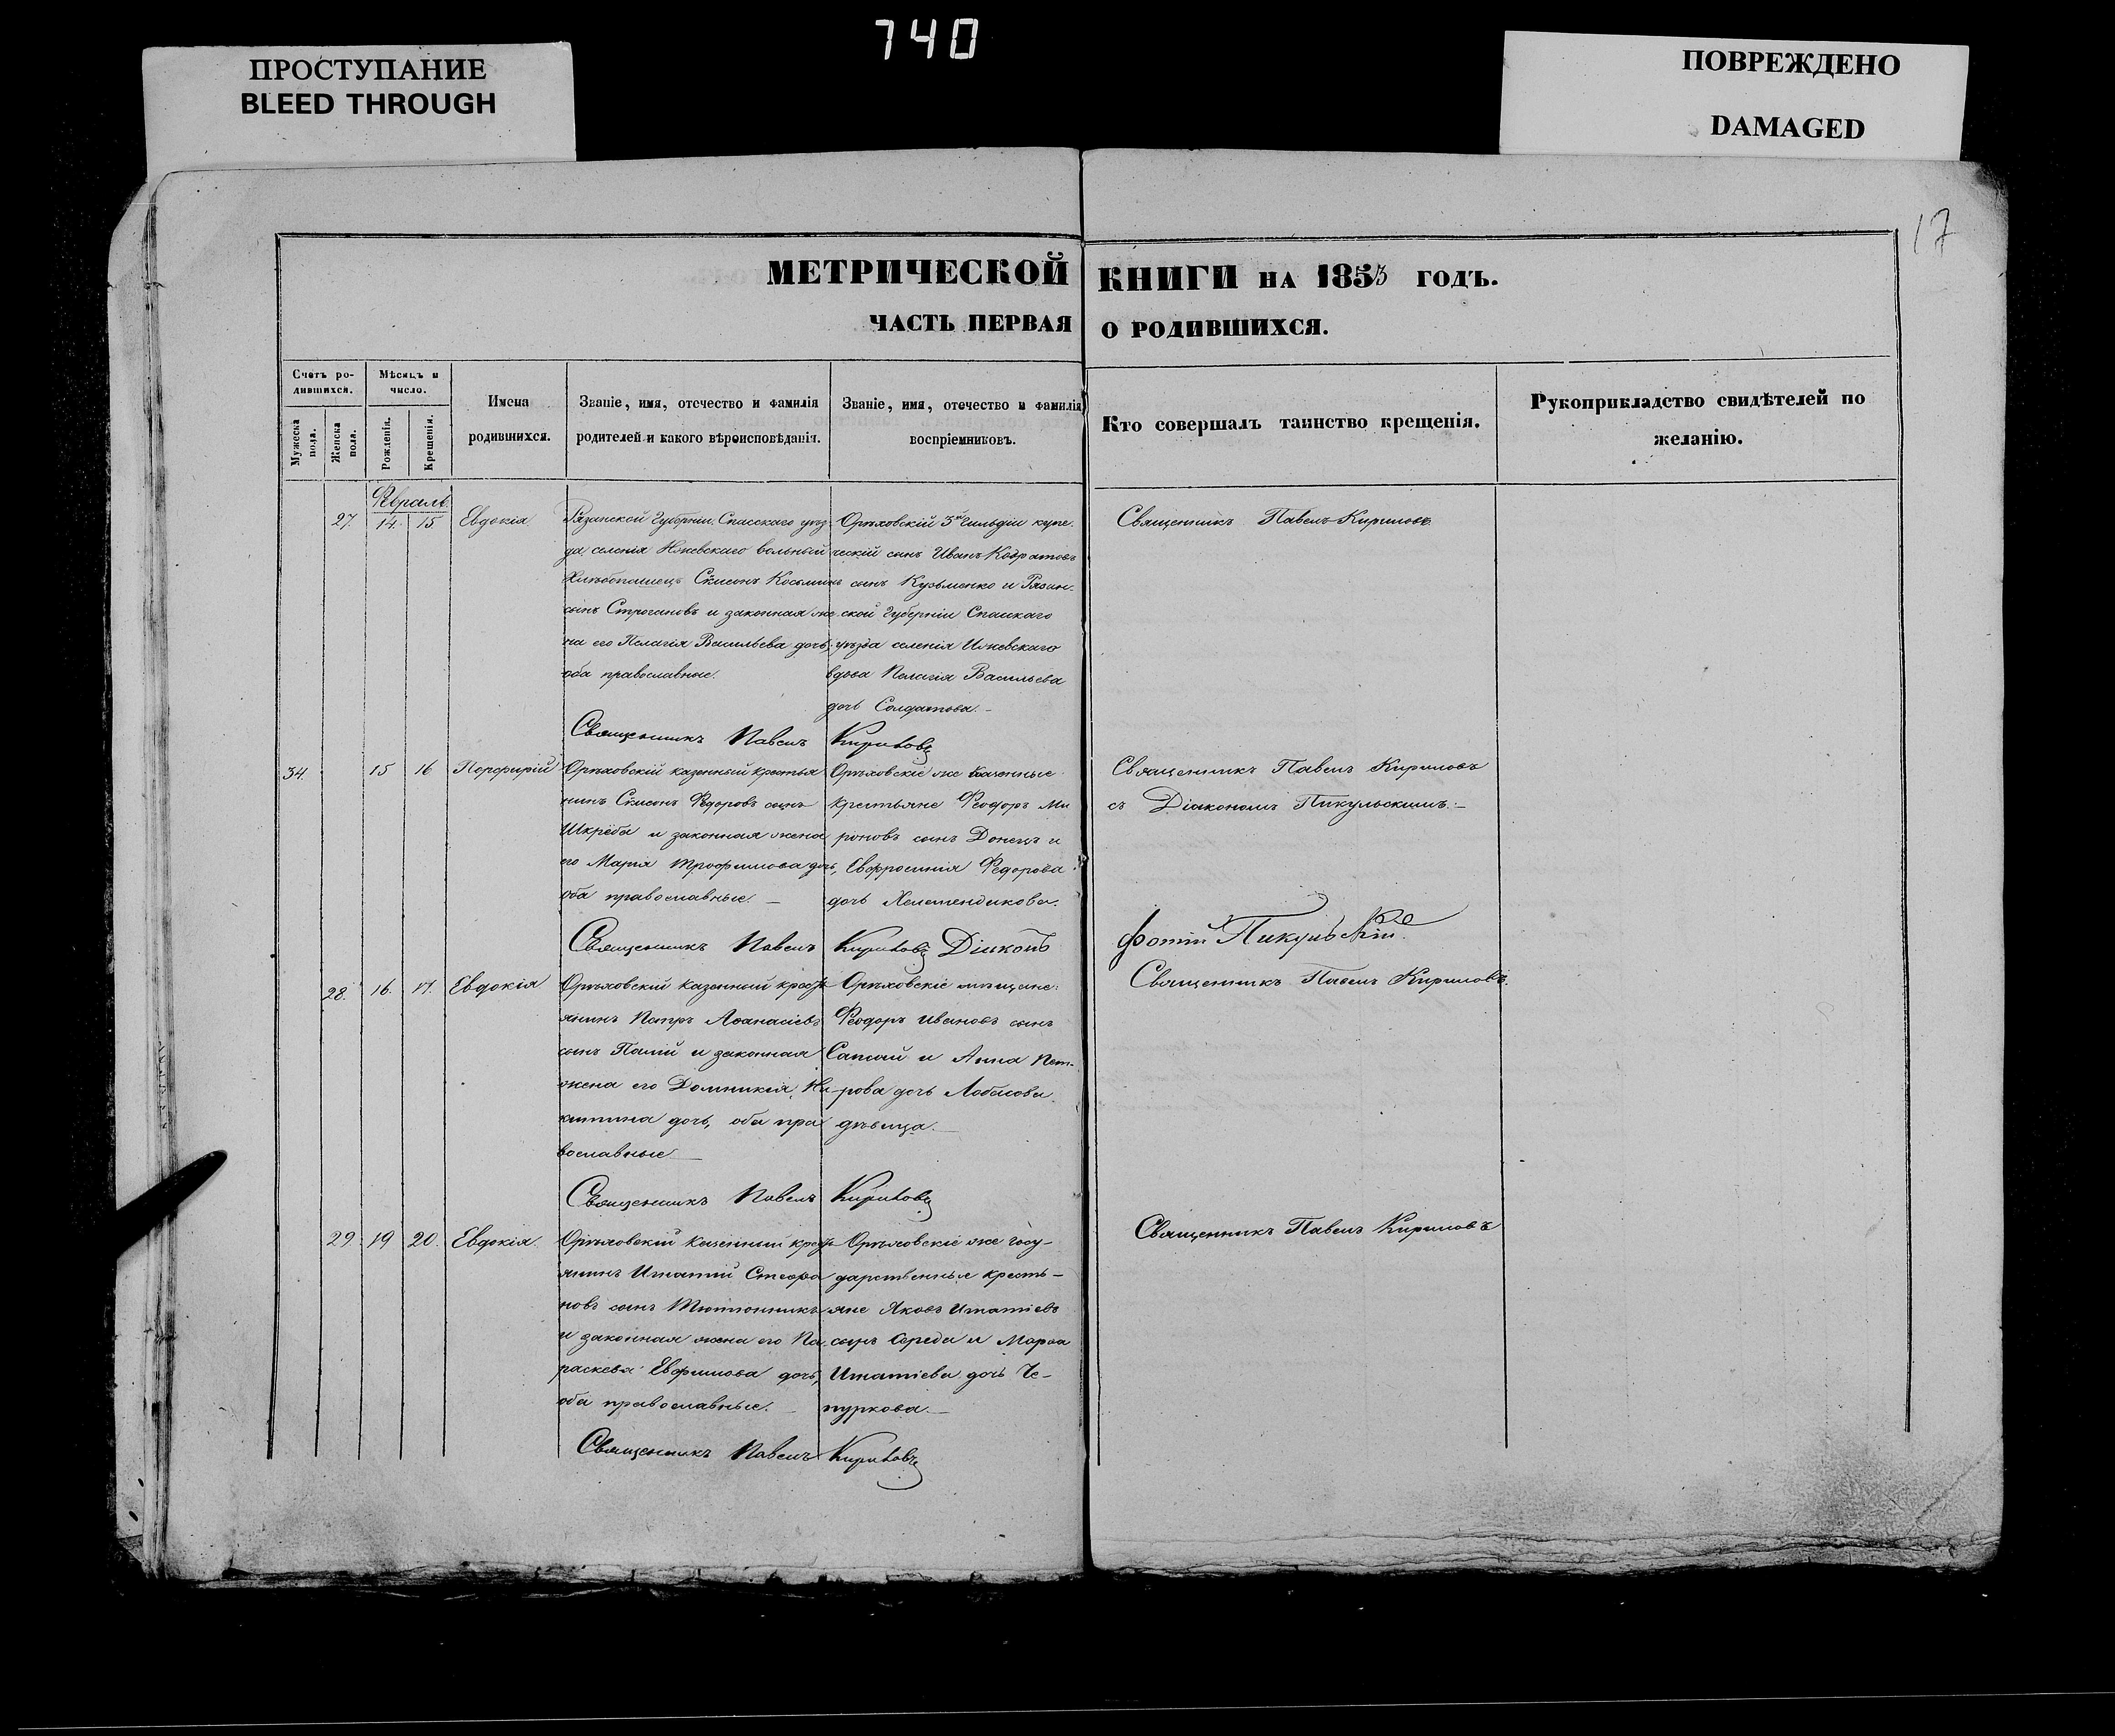 740
ПРОСТУПАНИЕ
BLEED THROUGH
ПОВРЕЖДЕНО
DAMAGED
17
МЕТРИЧЕСКОЙ КНИГИ НА 1853 ГОДЪ.
ЧАСТЬ ПЕРВАЯ О РОДИВШИХСЯ.
Счетъ ро-
дившихся.
Мужеска
пола.
Женска
пола.
Мѣсяцъ и
число.
Рожденія.
Крещенія.
Имена
родившихся.
Званіе, имя, отечество и фамилія
родителей и какого вѣроисповѣданія.
Званіе, имя, отечество и фамилія
воспріемниковъ.
Кто совершалъ таинство крещенія.
Рукоприкладство свидѣтелей по
желанію.
Февраль
27. 14. 15 Евдокія
Рязанской Губерніи, Спасскаго уѣз
да селенія Ижевскаго вольный
Хлѣбопашецъ Сѵмеонъ Косьминъ
сынъ Строгановъ и законная же
на его Пелагія Васильева дочь,
оба православные.
Орѣховскій 3й Гильдіи купе
ческій сынъ Иванъ Кодратовъ
сынъ Кузьменко и Рязан-
ской Губерніи Спаскаго
уѣзда селенія Ижевскаго
вдова Пелагія Васильева
дочь Солдатова.-
Священникъ Павелъ Кириловъ
Священникъ Павелъ Кириловъ
34. 15 16 Порфирій
Орѣховскій казенный крестья
нинъ Сѵмеонъ Федоровъ сынъ
Шкреба и законная жена
его Марія Трофимова дочь,
оба православные. —
Орѣховскіе же казенные
крестьяне Феодоръ Ми
роновъ сынъ Донецъ и
Евфросинія Федорова
дочь
Священникъ Павелъ Кириловъ
съ Діакономъ Пикульскимъ.-
Священникъ Павелъ Кириловъ Діаконъ Фотій Пикульскій
28. 16. 17. Евдокія
Орѣховскій казенный крест
янинъ Петръ Аѳанасіевъ
сынъ Палій и законная
жена его Домникія Ни
китина дочь, оба пра
вославные. —
Орѣховскіе мѣщане:
Феодоръ Ивановъ сынъ
и Анна Пет-
рова дочь
дѣвица. —
Священникъ Павелъ Кириловъ.
Священникъ Павелъ Кириловъ
29 19 20. Евдокія.
Орѣховскій казенный крест
янинъ Игнатій Стефа
новъ сынъ Тютюнникъ
и законная жена его Па
раскева Евфимова дочь,
оба православные. —
Орѣховскіе же госу-
дарственные кресть-
яне Яковъ Игнатіевъ
сынъ Середа и Марѳа
Игнатіева дочь Че-
пуркова. —
Священникъ Павелъ Кириловъ
Священникъ Павелъ Кириловъ